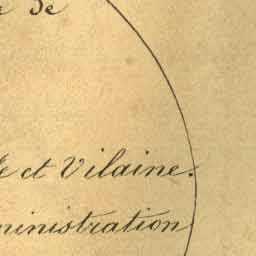 de
et Vilaine.
ministration